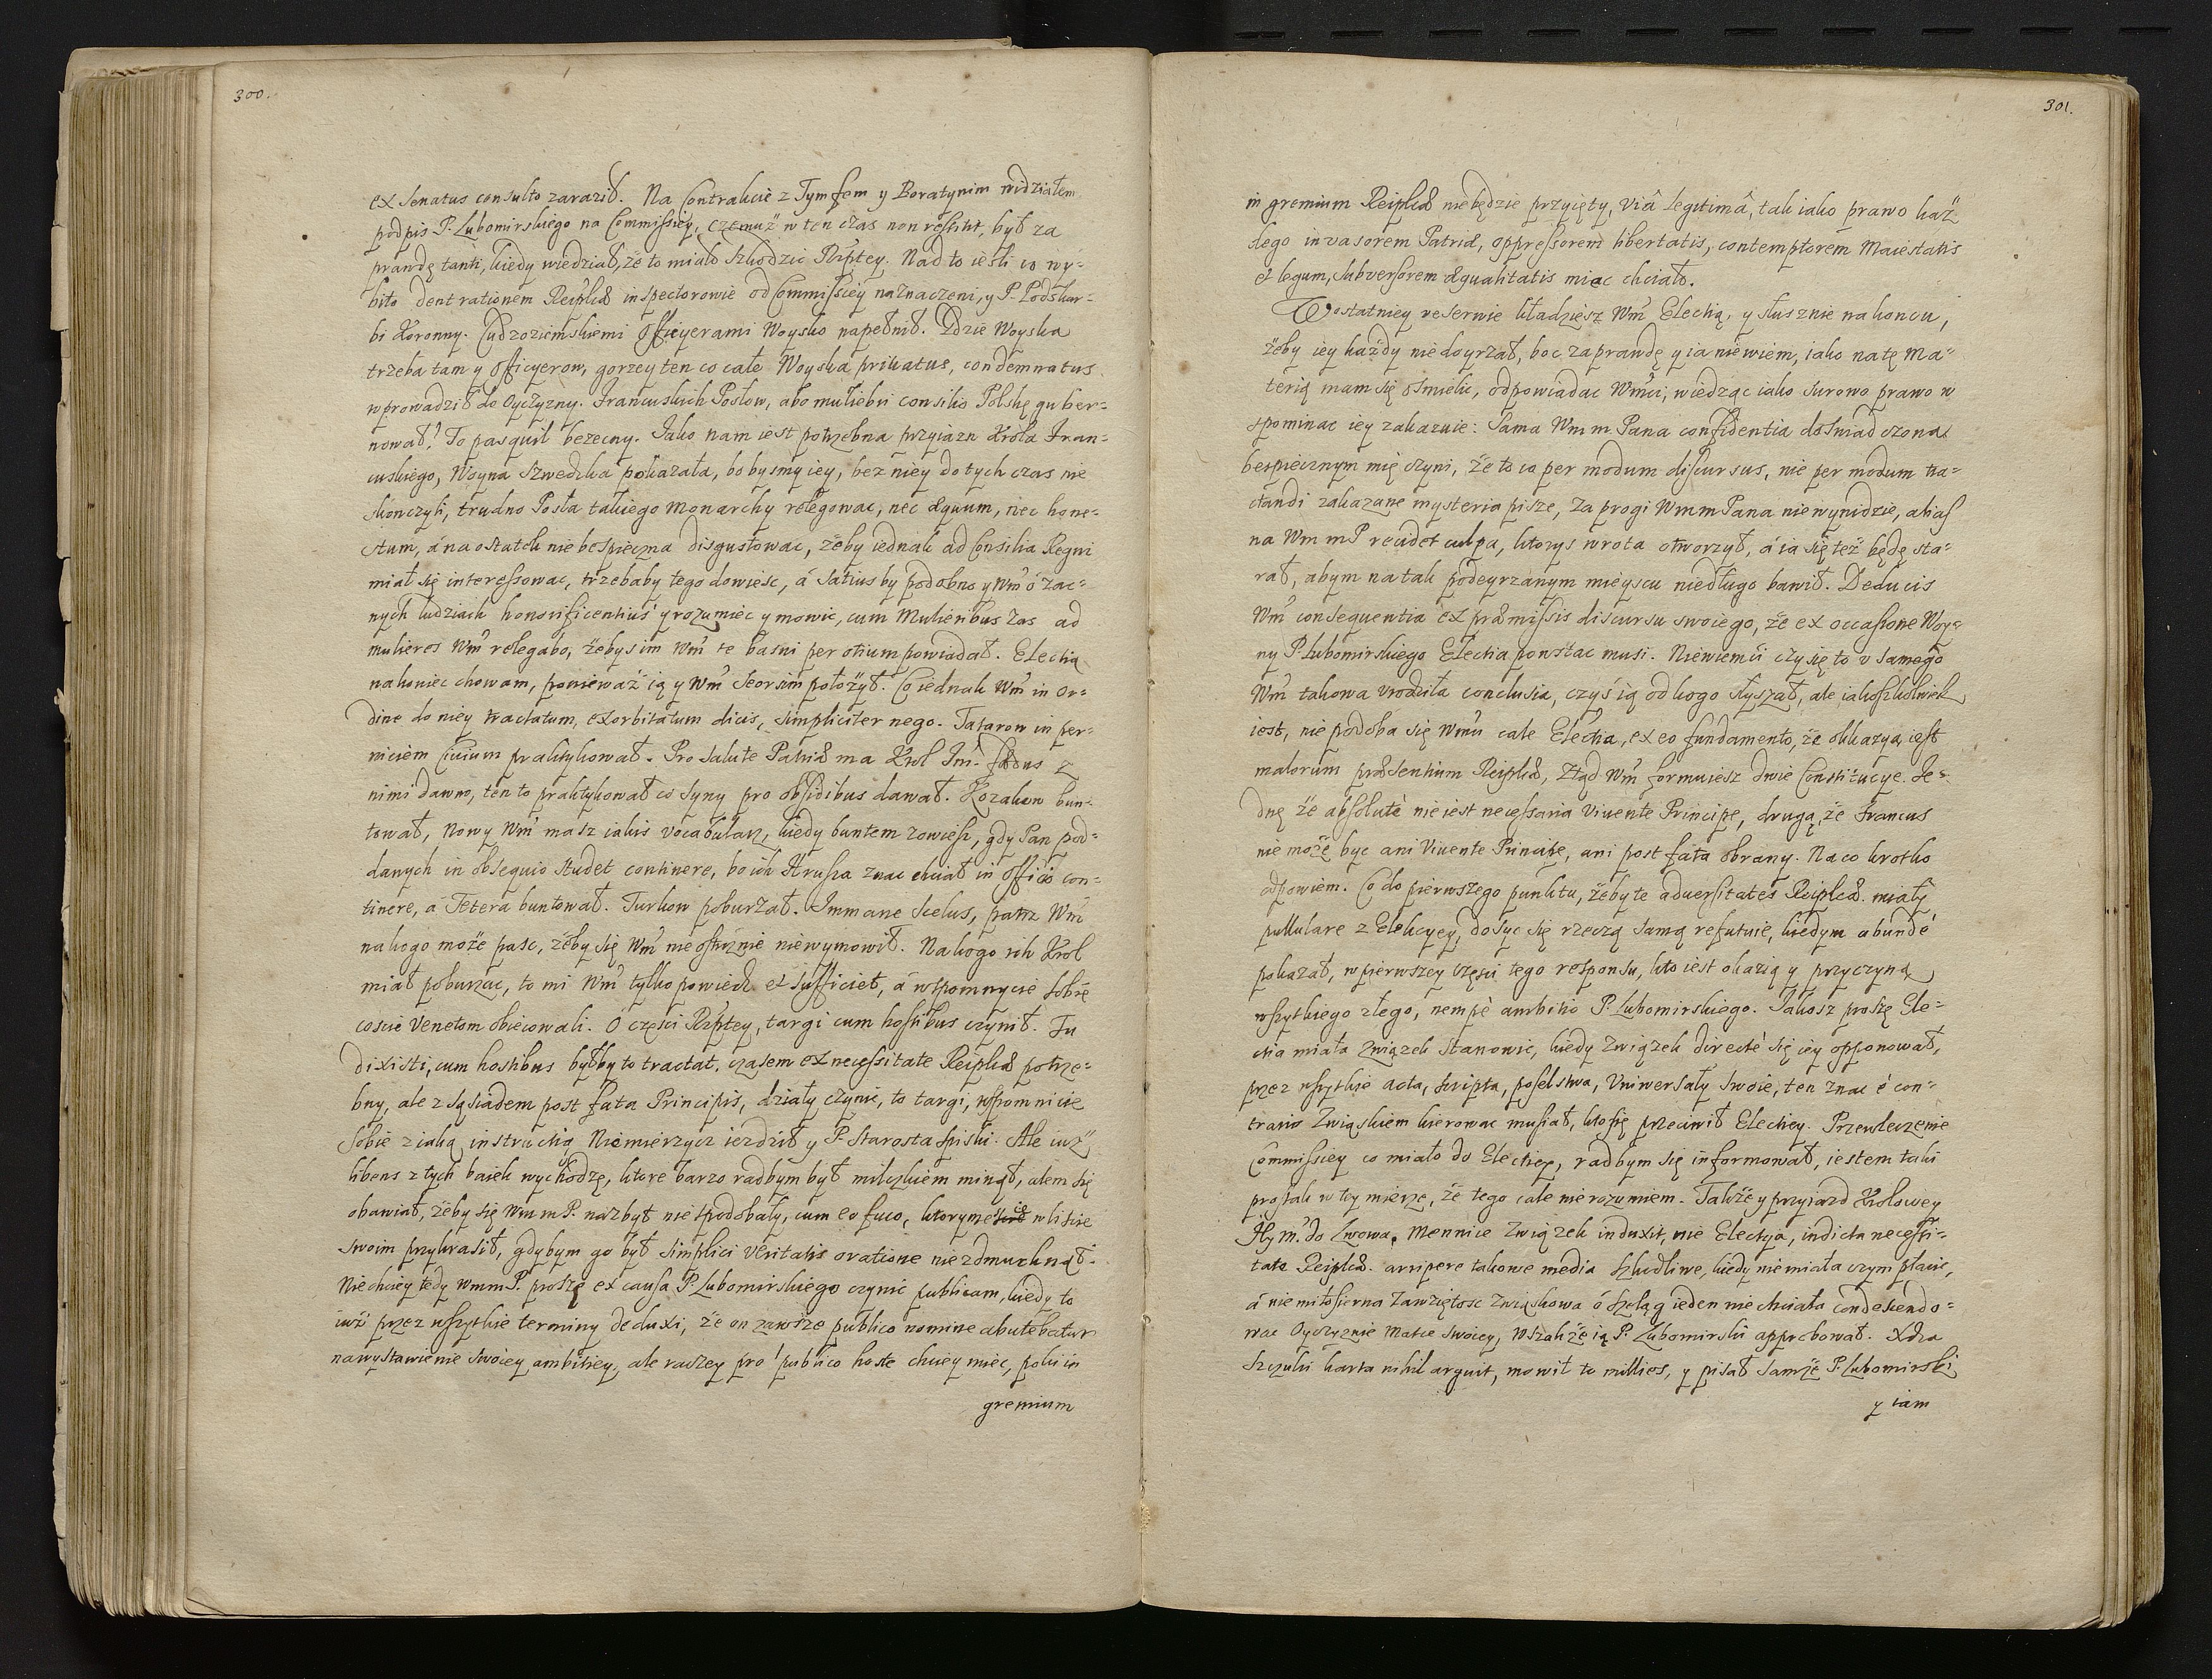 300.
ex Senatus consulto zaraził. Na Contrakcie z Tymfem y Boratynim widziałem
podpis P. Lubomirskiego na Commissiey, czemuż w ten czas non restitit, był za
prawdę tanti, kiedy wiedział, że to miało szkodzic Rzptey. Nad to iesli co wy-
bito dent rationem Reiplcæ inspectorowie od Commissiey naznaczeni, y P. Podskar-
bi Koronny. Cudzoziemskiemi Officyerami Woysko napełnił. Gdzie Woyska
trzeba tam y Officyerow, gorzey ten co całe Woyska privatus, condemnatus
wprowadził do Oyczyzny. Francuskich Posłow, abo muliebri consilio Polskę guber-
nował! To pasquil bezecny. Jako nam iest potrzebna przyiazn Krola Fran-
cuskiego, Woyna Szwedzka pokazała, bo bysmy iey, bez niey do tych czas nie
skonczyli, trudno Posła takiego Monarchy relegowac, nec æquum, nec hone-
stum, á na ostatek niebespieczna disgustowac, żeby iednak ad Consilia Regni
miał się interessowac, trzebaby tego dowiesc, á satius by podobno y Wm̃ ó zac-
nych ludziach honorificentius y rozumiec y mowic, cum Mulieribus zas ad
mulieres Wm̃ relegabo, żebys im Wm̃ te basni per otium powiadał. Electią
nakoniec chowam, ponieważ ią y Wm̃ seorsim położył. Co iednak Wm̃ in or-
dine do niey tractatum, exorbitatum dicis, simpliciter nego. Tatarow in per-
niciem Civium praktykował. Pro salute Patriæ ma Krol Im̃. fædus z
nimi dawno, ten to praktykował co Syny pro obsidibus dawał. Kozakow bun-
tował, Nowy Wm̃ masz iakis vocabularz, kiedy buntem zowiesz, gdy Pan pod-
danych in obsequio studet continere, bo ich Hrusza znac chciał in officio con-
tinere, á Tetera buntował. Turkow poburzał. Immane scelus, patrz Wm̃
na kogo może pasc, żeby się Wm̃ nieostrożnie niewymowił. Na kogo ich Krol
miał poburzac, to mi Wm̃ tylko powiedz et sufficiet, á wspomnycie sobie
coscie Venetom obiecowali. O częsci Rzptey, targi cum hostibus czynił. Tu
dixisti, cum hostibus byłby to tractat, czasem ex necessitate Reiplcæ potrze-
bny, ale z sąsiadem post fata Principis, działy czynic, to targi, wspomnicie
sobie z iaką instructią Niemierzycz iezdził y P. Starosta Spiski. Ale iuż
libens z tych baiek wychodzę, ktore barzo radbym był milczkiem minął, alem się
obawiał, żeby się Wm m P. nazbyt nie spodobały, cum eo fuco, ktorymescie w liscie
swoim przykrasił, gdybym go był simplici veritatis oratione nie zdmuchnął.
Niechciey tedy Wmm P. proszę ex causa P. Lubomirskiego czynic publicam, kiedy to
iuż przez wszytkie terminy deduxi, że on zawsze publico nomine abutebatur
na wystawienie swoiey ambitiey, ale raczey pro publico hoste chciey miec, poki in
gremium
301.
in gremium Reiplcæ niebędzie przyięty, viâ legitimâ, tak iako prawo każ-
dego invasorem Patriæ, oppressorem libertatis, contemptorem Maiestatis
et legum, subversorem æqualitatis miec chciało.
W ostatniey reserwie kładziesz Wm̃ Electią, y słusznie na koncu,
żeby iey każdy niedoyrzał, boc zaprawdę y ia niewiem, iako na tę ma-
terią mam się osmielic, odpowiadac Wm̃ci, wiedząc iako surowo prawo w
spominac iey zakazuie: Sama Wm m Pana confidentia doswiadczona
bespiecznym mię czyni, że to co per modum discursus, nie per modum tra-
ctandi zakazane mysteria pisze, za progi Wmm Pana niewynidzie, alias
na Wm m P recidet culpa, ktorys wrota otworzył, á ia się też będę sta-
rał, abym na tak podeyrzanym mieyscu niedługo bawił. Deducis
Wm̃ consequentia ex præmissis discursu swoiego, że ex occasione Woy-
ny P. Lubomirskiego Electia powstac musi. Niewiem ći czy się to v samego
Wm̃ takowa vrodziła conclusia, czyś ią od kogo słyszał, ale iakoszkolwiek
iest, nie podoba się Wm̃ci cale Electia, ex eo fundamento, że okkazyą iest
malorum præsentium Reiplcæ, Ztąd Wm̃ formuiesz dwie Constitucye. Je-
dnę że absolutè nie iest necessaria vivente Principe, drugą, że Francus
nie może byc ani vivente Principe, ani post fata obrany. Na co krotko
odpowiem. Co do pierwszego punktu, żeby te adversitates Reiplcæ miały
pullulare z Elekcyey, dosyc się rzeczą samą refutuie, kiedym abundè
pokazał, w pierwszey częsci tego responsu, kto iest okazią y przyczyną
wszytkiego złego, nempè ambitio P. Lubomirskiego. Jakosz proszę Ele-
ctia miała Związek stanowic, kiedy Związek directè się iey opponował,
przez wszytkie acta, scripta, poselstwa, Vniwersały swoie, ten znac è con-
trario Związkiem kierowac musiał, kto się przeciwił Electiey. Przewleczenie
Commissiey co miało do Electiey, radbym się informował, iestem taki
prostak w tey mierze, że tego cale nierozumiem. Także y przyiazd Krolowey
Jey m. do Lwowa. Mennice Związek induxit, nie Electya, indicta necessi-
tate Reiplcæ arripere takowe media szkodliwe, kiedy niemiała czym płacic,
á niemiłosierna zawziętosc związkowa ó szeląg ieden nie chciała condescendo-
wac Oyczyznie Matce swoiey, Wszakże ią P. Lubomirski approbował. Xdza
Szczuki karta nihil arguit, mowił to millies, y pisał samże P. Lubomirski
y iam